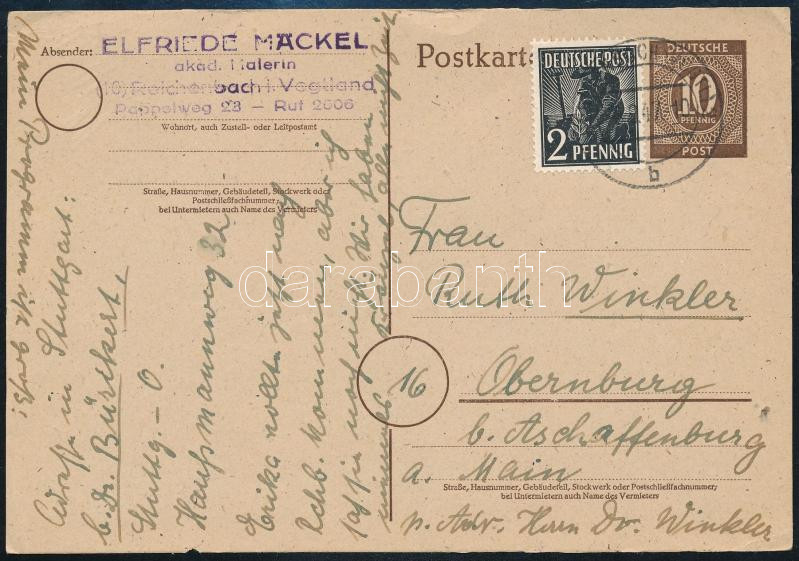 Absender: ELFRIEDE MÄCKEL
akad. Malerin
(10) Reichenbach i. Vogtland
Pappelweg 23 — Ruf 2606
Wohnort, auch Zustell- oder Leitpostamt
Straße, Hausnummer, Gebäudeteil, Stockwerk oder
Postschließfachnummer,
bei Untermietern auch Name des Vermieters
Postkarte
DEUTSCHE POST
2 PFENNIG
DEUTSCHE
10
PFENNIG
POST
b
Frau
Ruth Winkler
16
Obernburg
b. Aschaffenburg
a. Main
Straße, Hausnummer, Gebäudeteil, Stockwerk oder Postschließfachnummer;
bei Untermietern auch Name des Vermieters
p. Adr. Herrn Dr. Winkler
Mein Programm ist groß!
in Stuttgart:
b. Dr. Bürtkert,
Stuttg. - O.
Haußmannweg 32
Erika jetzt nach
kommen, aber ich
noch nicht. Wir haben
darabanth